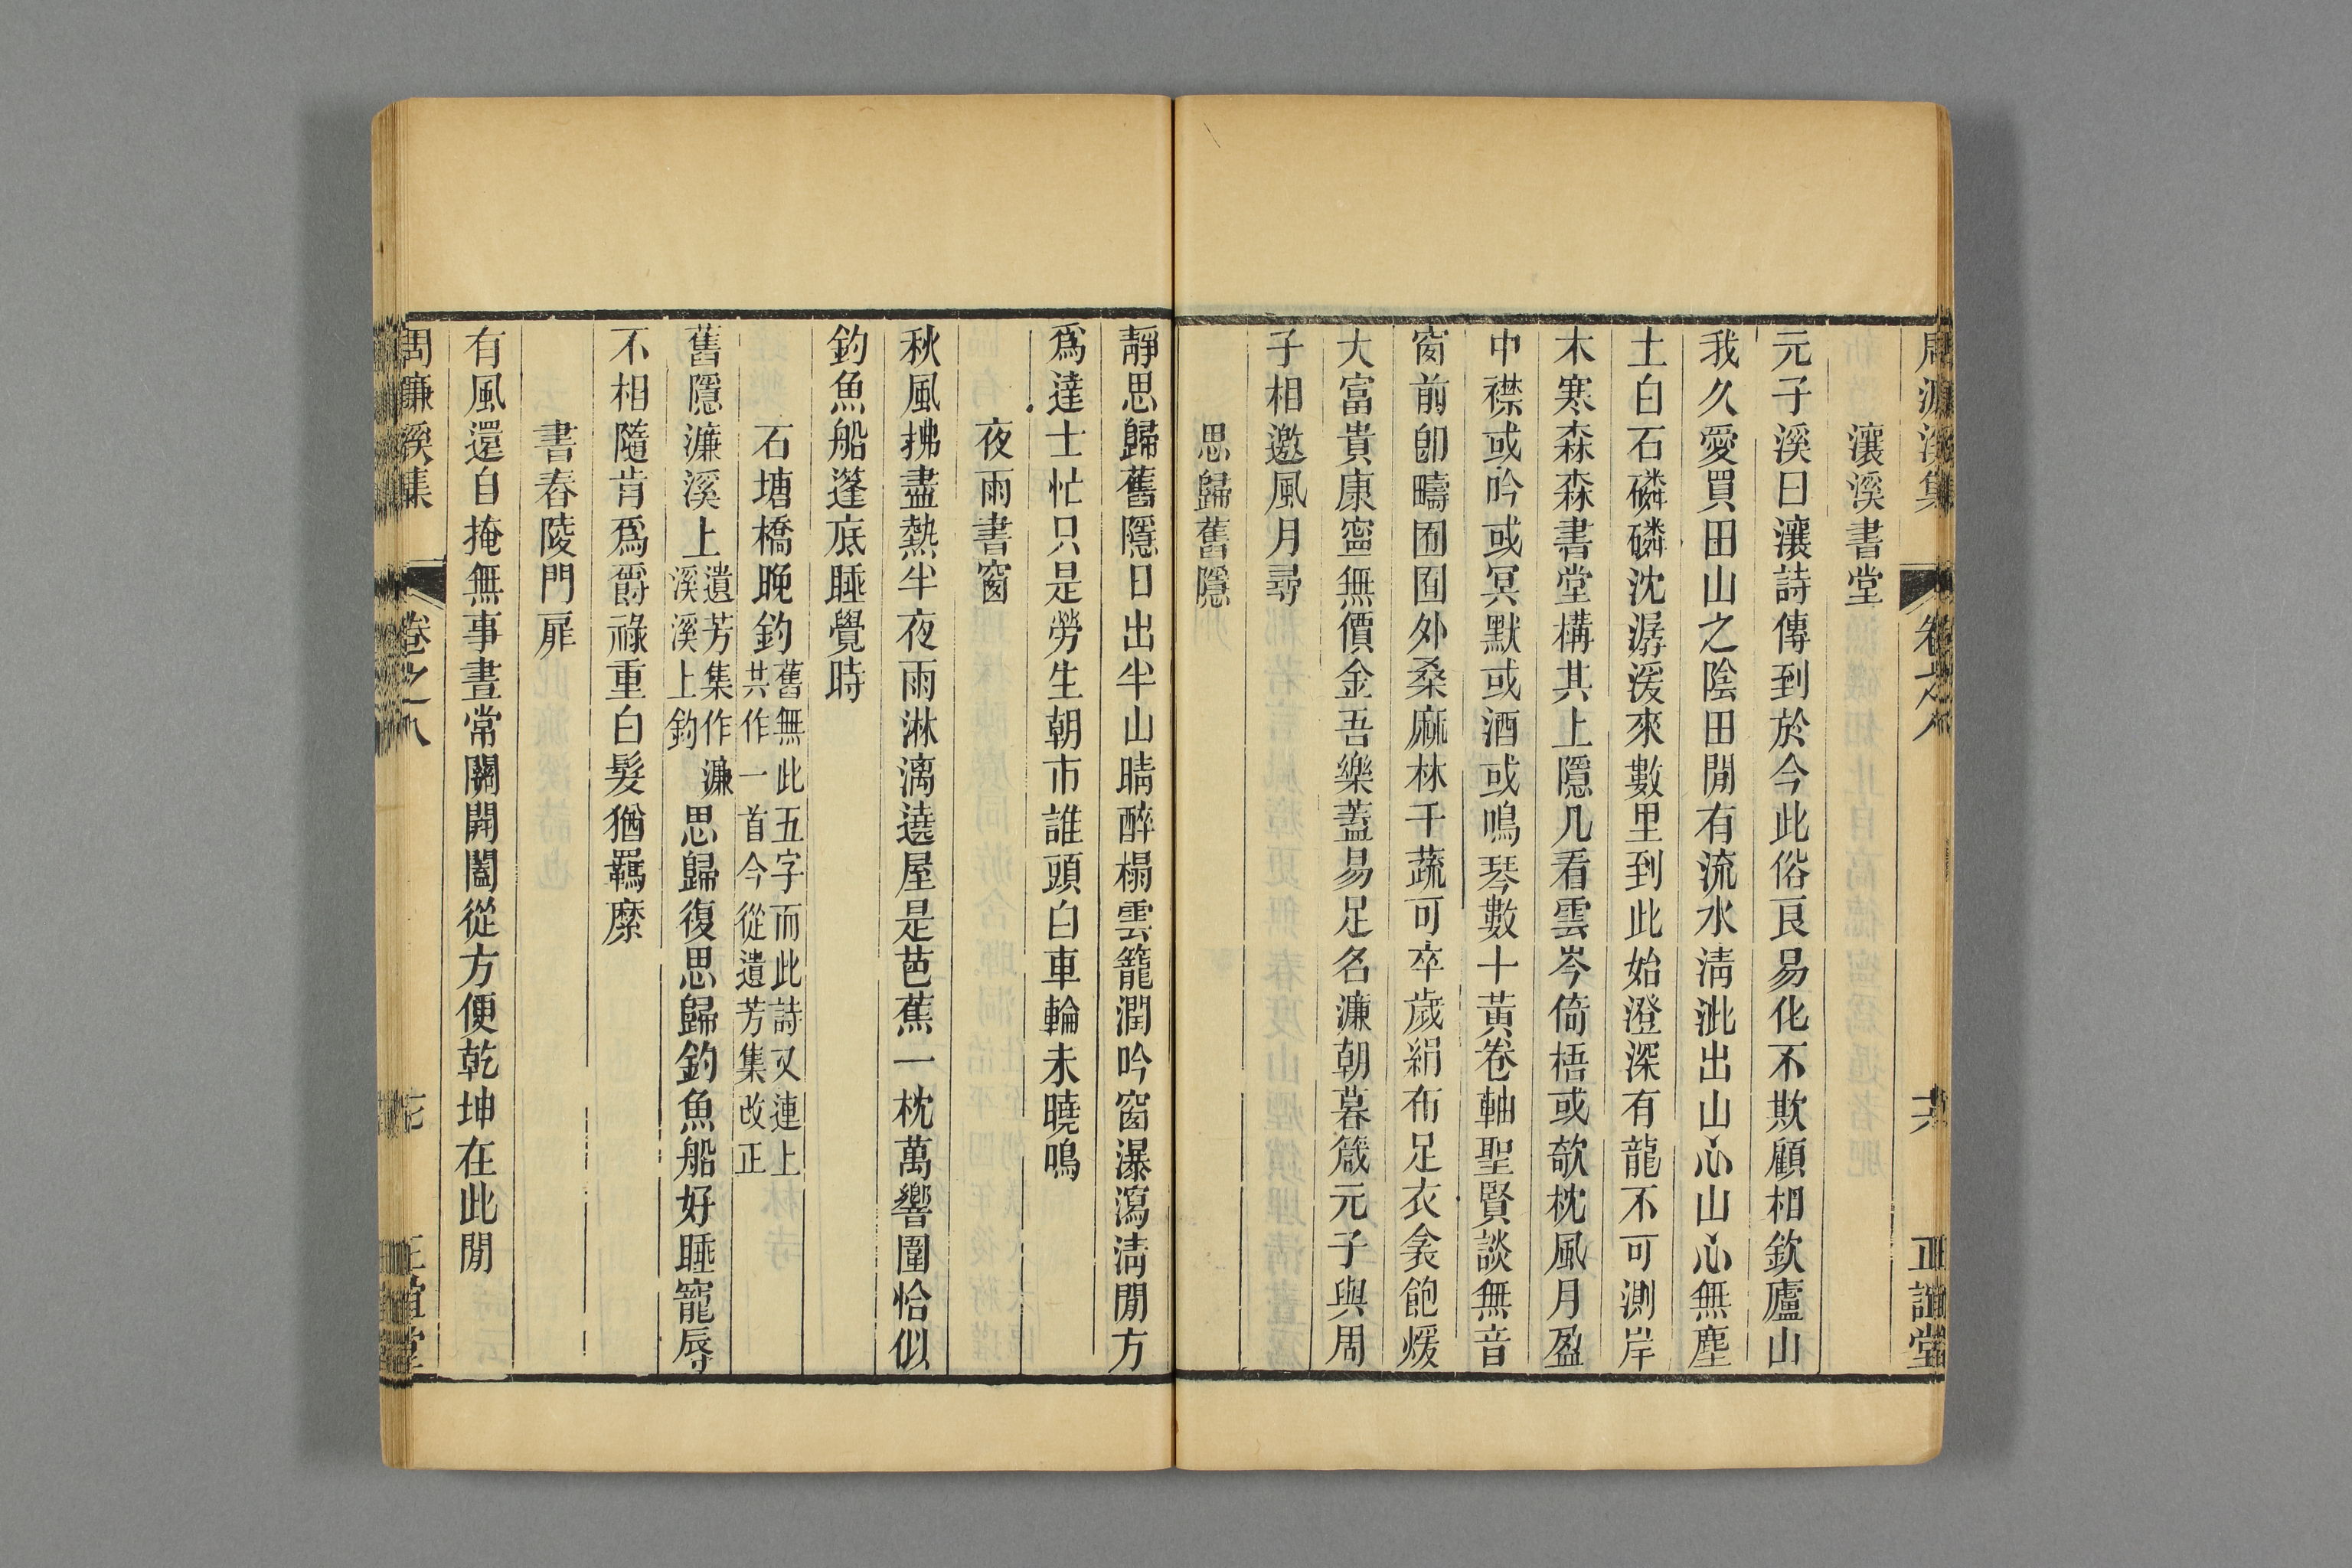 周濂溪集 卷之八 六 正誼堂
瀼溪書堂
元子溪曰瀼詩傳到於今此俗良易化不欺顧相欽廬山
我久愛買田山之陰田閒有流水淸泚出山心山心無塵
土白石磷磷沈潺湲來數里到此始澄深有龍不可測岸
木寒森森書堂構其上隱几看雲岑倚梧或欹枕風月盈
中襟或吟或冥默或酒或鳴琴數十黃卷軸聖賢談無音
窗前卽疇囿囿外桑麻林千蔬可卒歲絹布足衣衾飽煖
大富貴康寧無價金吾樂蓋易足名濂朝暮箴元子與周
子相邀風月尋
思歸舊隱
靜思歸舊隱日出半山晴醉榻雲籠潤吟窗瀑瀉淸閒方
爲達士忙只是勞生朝市誰頭白車輪未曉鳴
夜雨書窗
秋風拂盡熱半夜雨淋漓遶屋是芭蕉一枕萬響圍恰似
釣魚船篷底睡覺時
石塘橋晚釣舊無此五字而此詩又連上共作一首今從遺芳集改正
舊隱濂溪上遺芳集作濂溪溪上釣思歸復思歸釣魚船好睡寵辱
不相隨肯爲爵祿重白髮猶羈縻
書舂陵門扉
有風還自掩無事晝常關開闔從方便乾坤在此閒
周濂溪集 卷之八 正誼堂